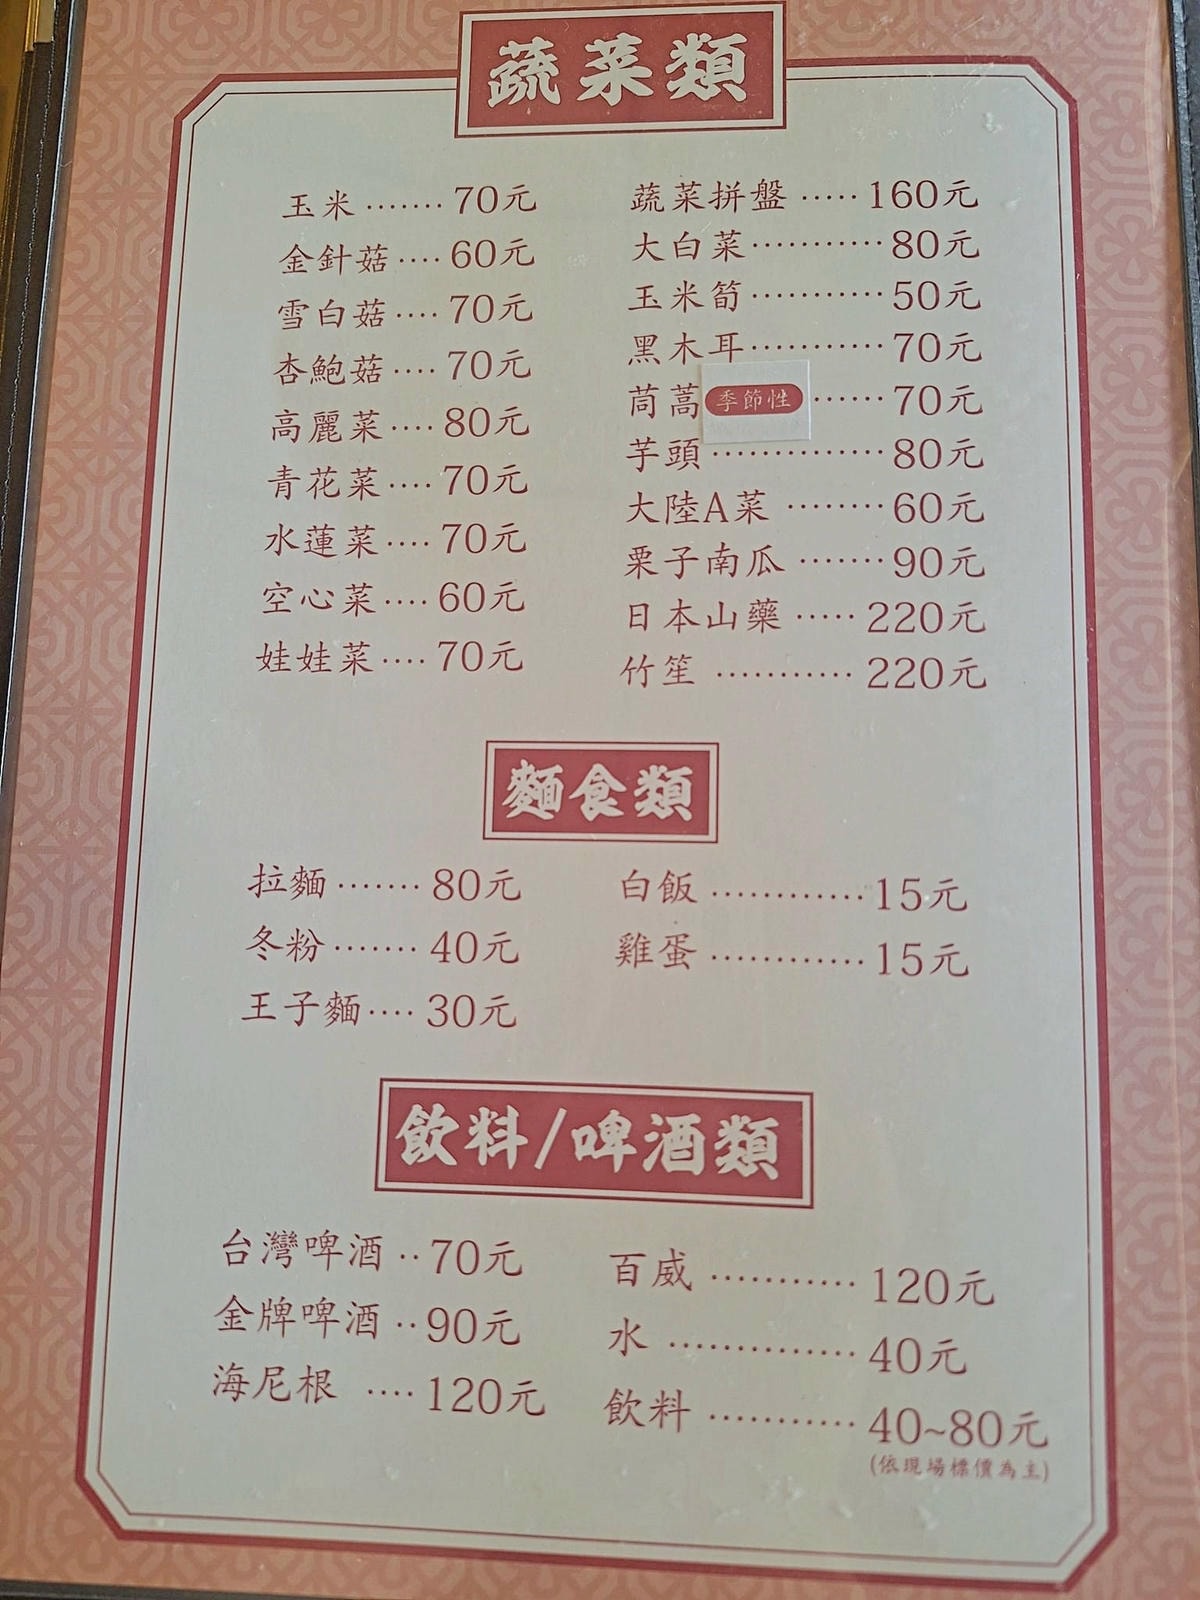 蔬菜類
玉米 ······· 70元
金針菇 ···· 60元
雪白菇 ···· 70元
杏鮑菇 ···· 70元
高麗菜 ···· 80元
青花菜 ···· 70元
水蓮菜 ···· 70元
空心菜 ···· 60元
娃娃菜 ···· 70元
蔬菜拼盤 ····· 160元
大白菜 ··········· 80元
玉米筍 ··········· 50元
黑木耳 ··········· 70元
茼蒿 季節性 ······ 70元
芋頭 ·············· 80元
大陸A菜 ········ 60元
栗子南瓜 ······· 90元
日本山藥 ····· 220元
竹笙 ··········· 220元
麵食類
拉麵 ······· 80元
冬粉 ······· 40元
王子麵 ···· 30元
白飯 ············ 15元
雞蛋 ············ 15元
飲料/啤酒類
台灣啤酒 ·· 70元
金牌啤酒 ·· 90元
海尼根 ···· 120元
百威 ··········· 120元
水 ·············· 40元
飲料 ··········· 40~80元
(依現場標價為主)